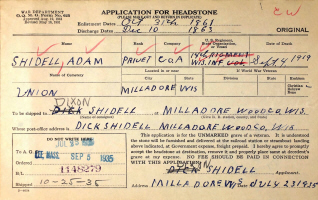 WAR DEPARTMENT
APPLICATION FOR HEADSTONE
CW
(PLEASE MAKE OUT AND RETURN IN DUPLICATE)
Enlistment Dates Oct 31th 1861
Discharge Dates Dec 10 1863
ORIGINAL
Name
Rank
Company
Date of Death
SHIDELL, ADAM
PRIVET
CO A
WIS. INF
Sept 4 1919
Name of Cemetery
Located in or near
If World War Veteran
UNION
MILLADORE WIS
DIXON
To be shipped to DICK SHIDELL at MILLADORE WOOD CO, WIS
Whose post-office address is DICK SHIDELL MILLADORE WOOD CO, WIS
DO NOT WRITE HERE
This application is for the UNMARKED grave of a veteran. It is understood
the stone will be furnished and delivered at the railroad station or steamboat landing
above indicated, at Government expense, freight prepaid. I hereby agree to promptly
accept the headstone at destination, remove it and properly place same at decedent's
grave at my expense. NO FEE SHOULD BE PAID IN CONNECTION
WITH THIS APPLICATION.
LEE, MASS. SEP 5 1935
1148279
DIXON
DICK SHIDELL
Applicant
Shipped 10-25-35
Address MILLADORE WIS Date JULY 23 1935